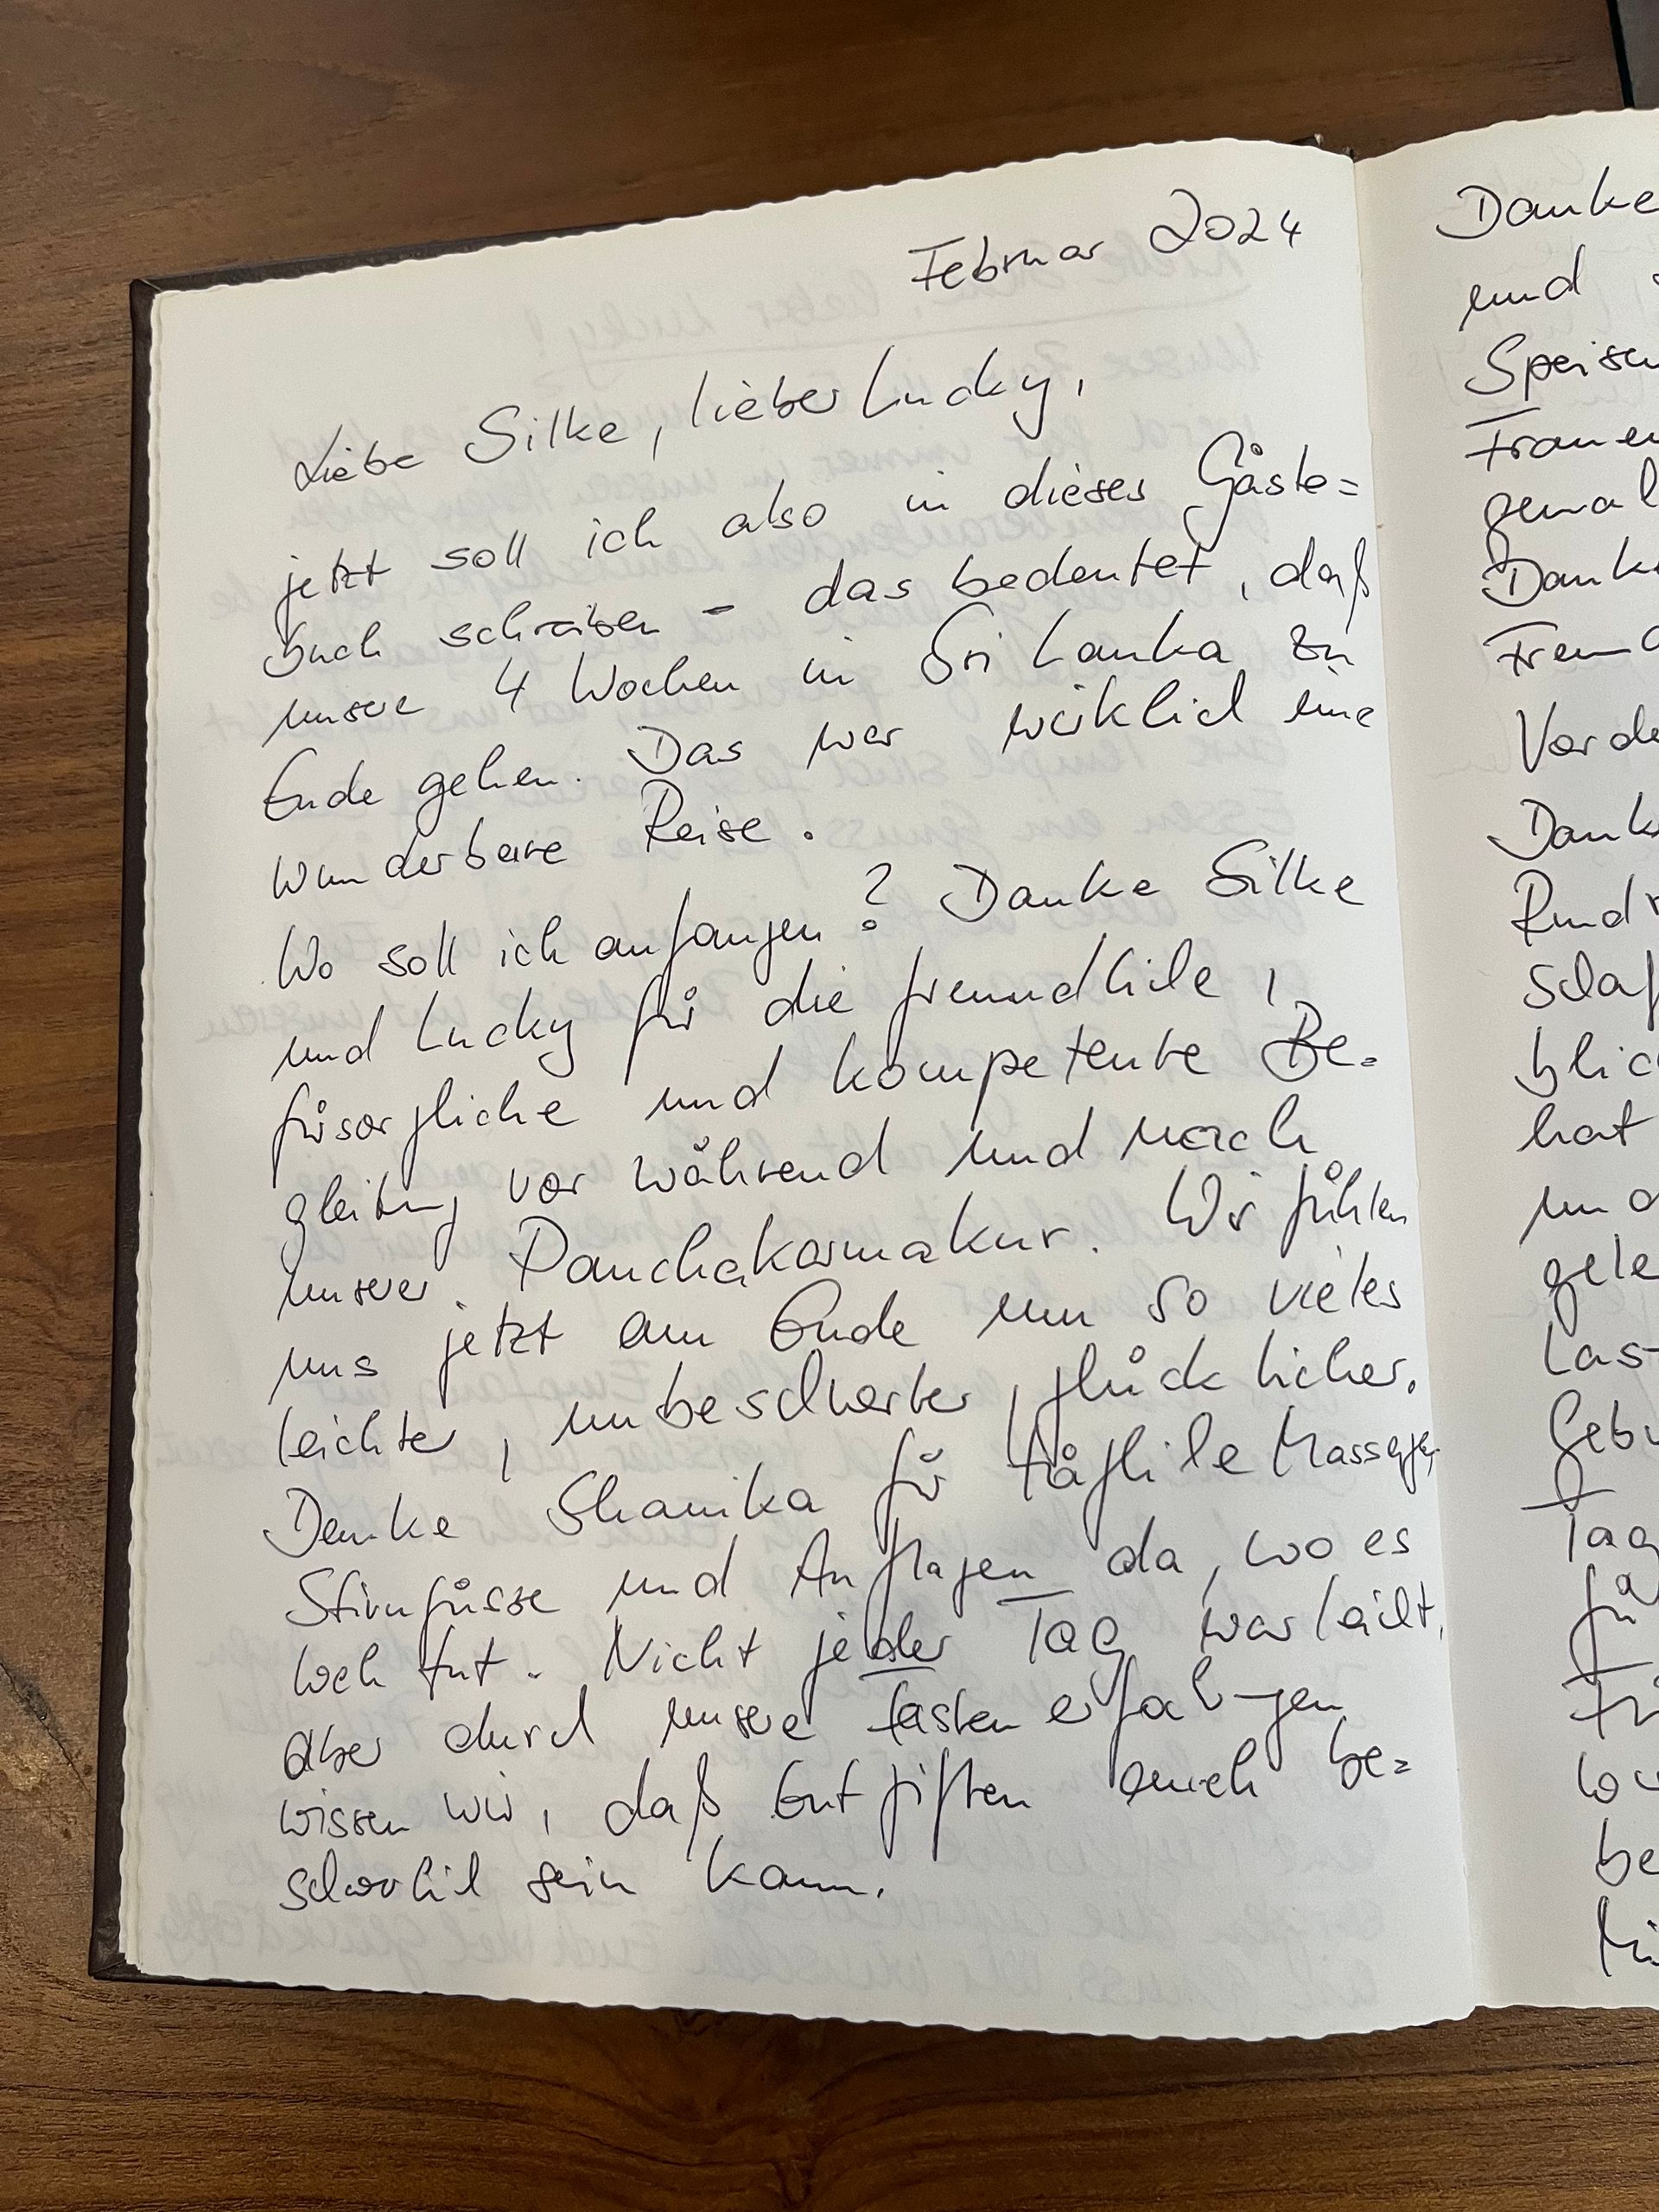 Februar 2024
Liebe Silke, lieber Lucky,
jetzt soll ich also in dieses Gäste=
buch schreiben - das bedeutet, daß
unsere 4 Wochen in Sri Lanka zu
Ende gehen. Das war wirklich eine
wunderbare Reise.
Wo soll ich anfangen? Danke Silke
und Lucky für die freundliche,
fürsorgliche und kompetente Be=
gleitung vor während und nach
unserer Panchakarmakur. Wir fühlen
uns jetzt am Ende um so vieles
leichter, unbeschwerter, glücklicher.
Danke Shanika für tägliche Massagen
Stirngüsse und Auflagen da, wo es
weh tut. Nicht jeder Tag war leicht,
aber durch unsere Fastenerfahrungen
wissen wir, daß Entgiften auch be=
schwerlich sein kann.
Danke
und
Speisen
Frauen
gemal
Danke
Freud
Vorde
Dank
Rundr
Schlaf
blic
hat
und
gele
Las
Gebu
Tag
für
Fr
wu
be